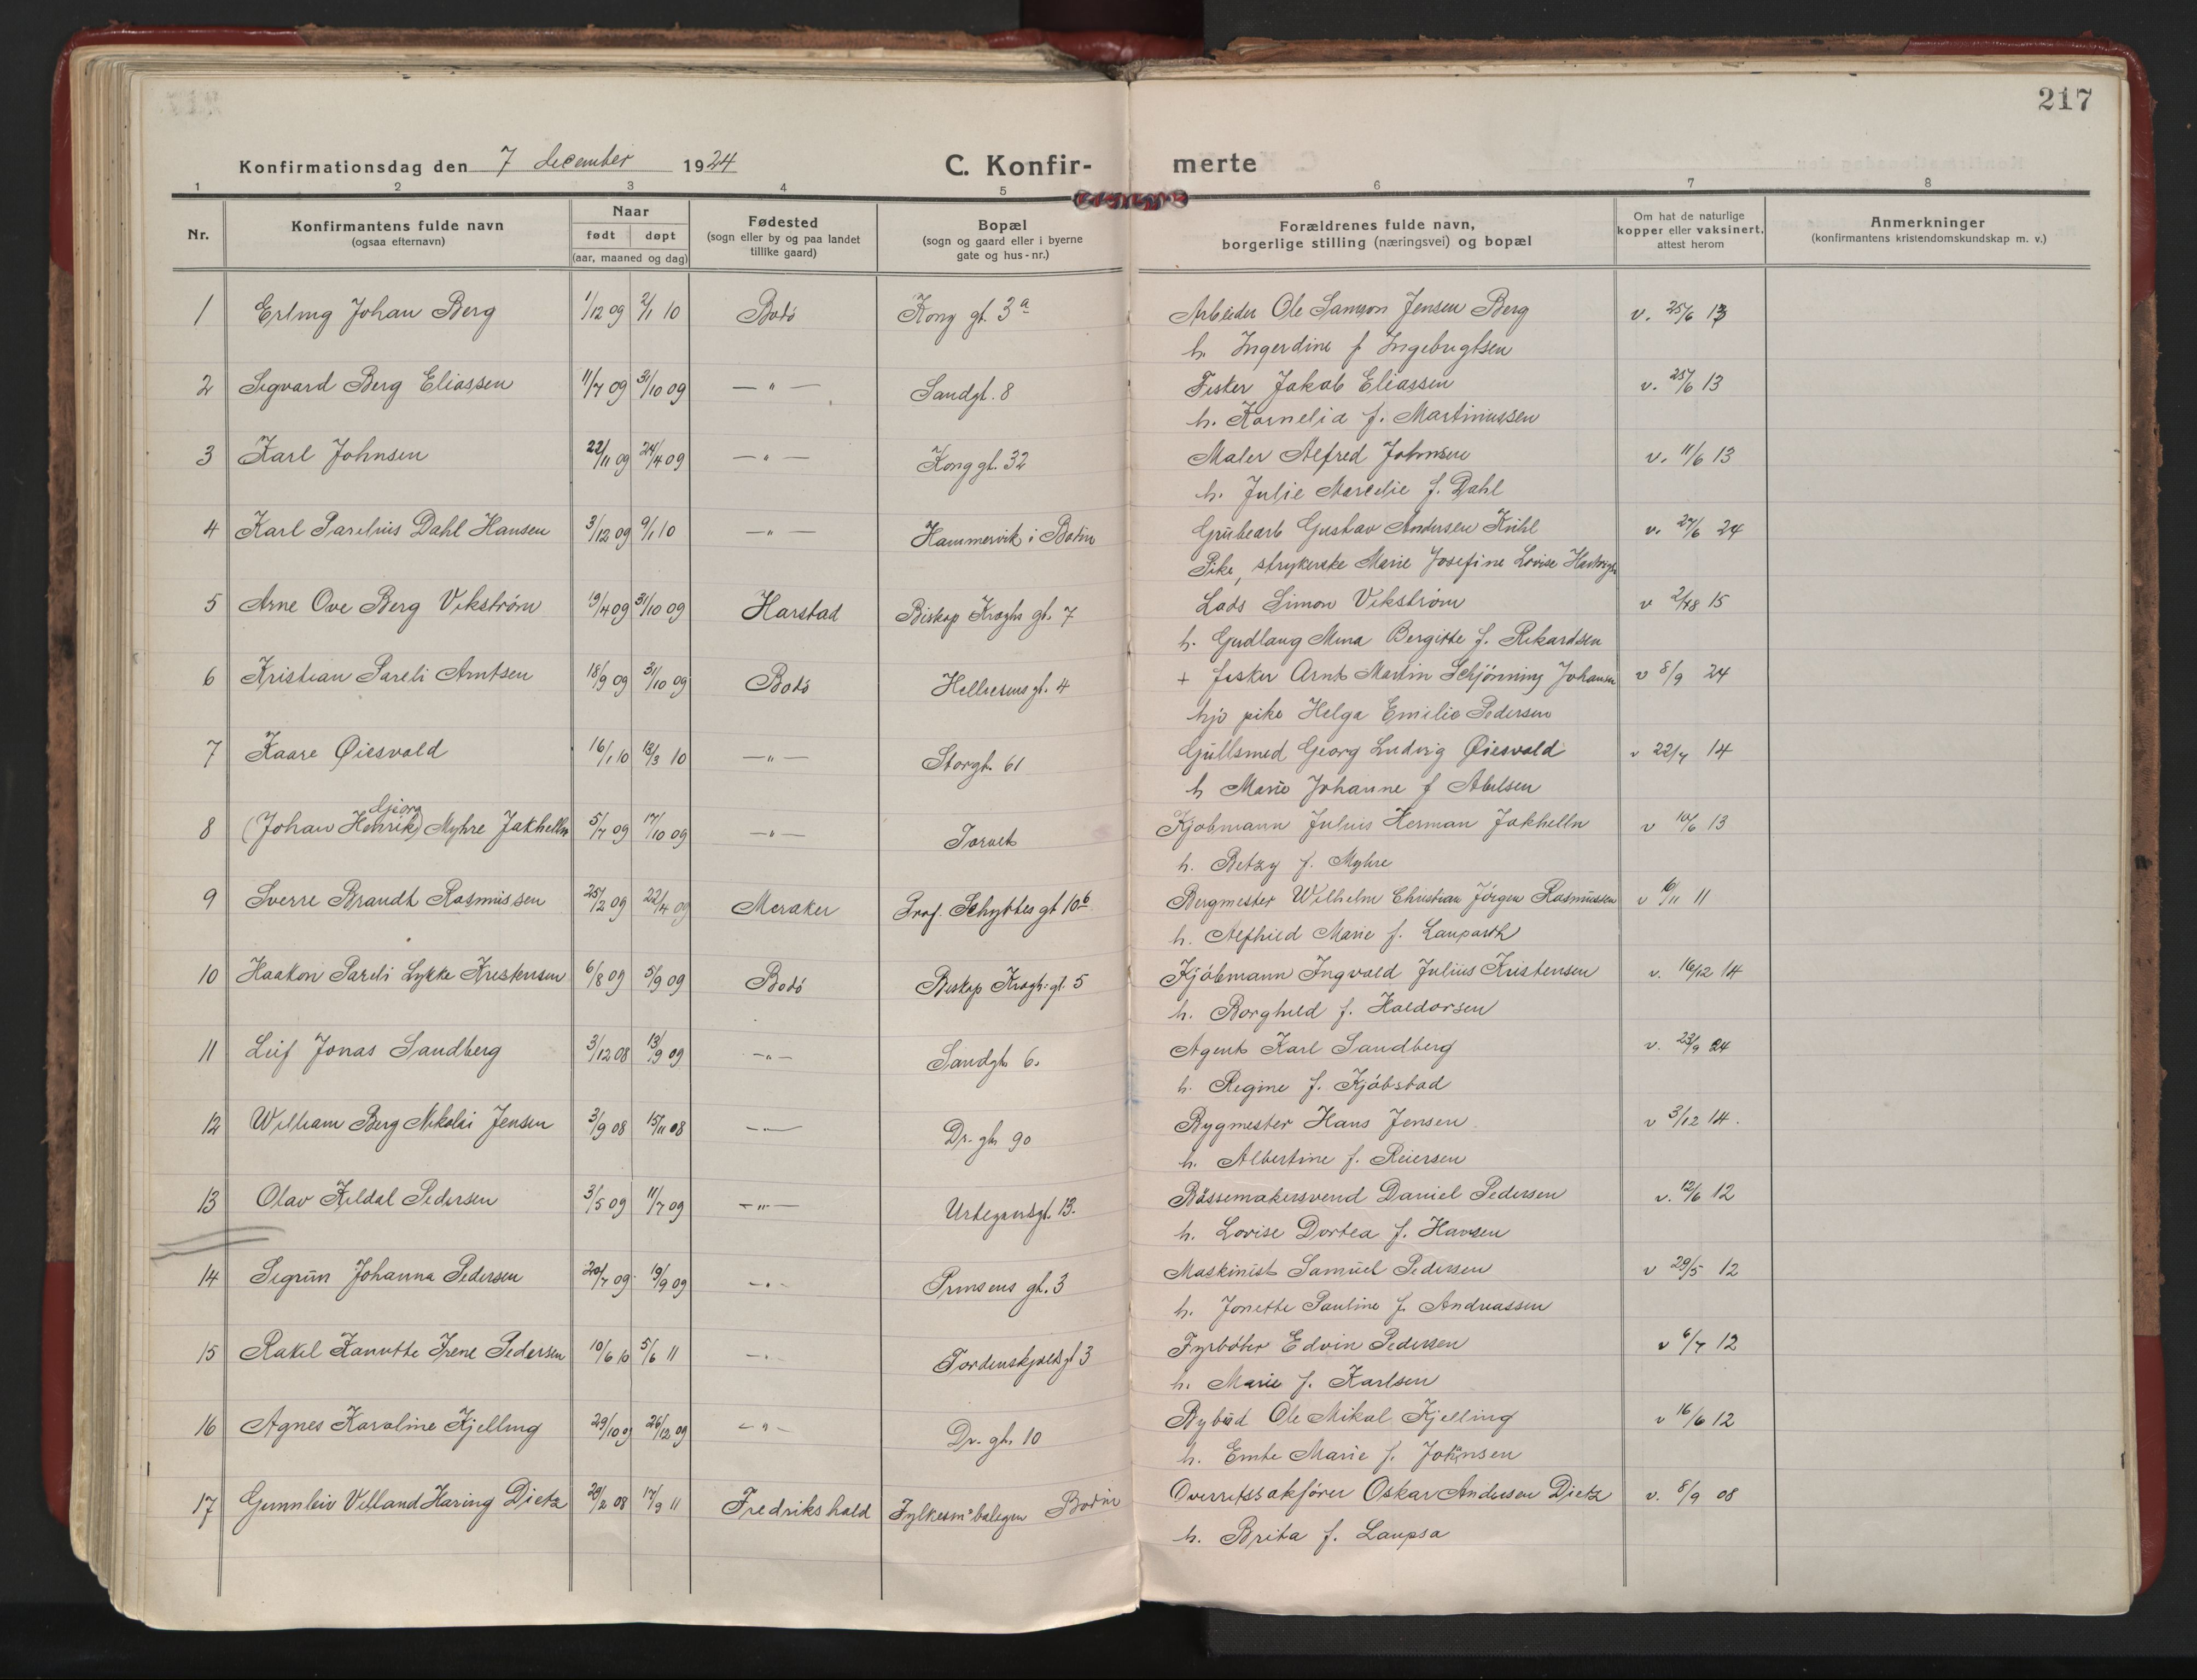 217
Konfirmationsdag den 7 december 1924
C. Konfir-
merte
1 2 3 4 5 6 7 8
Nr.
Konfirmantens fulde navn
(ogsaa efternavn)
Naar
født døpt
(aar, maaned og dag)
Fødested
(sogn eller by og paa landet
tillike gaard)
Bopæl
(sogn og gaard eller i byerne
gate og hus-nr.)
Forældrenes fulde navn,
borgerlige stilling (næringsvei) og bopæl
Om hat de naturlige
kopper eller vaksinert,
attest herom
Anmerkninger
(konfirmantens kristendomskundskap m. v.)
1 Erling Johan Berg 1/12 09 2/1 10 Bodö Kong gt. 3a Arbeider Ole Samson Jensen Berg v. 25/6 13
h. Ingerdine f Ingebrigtsen
2 Sigvard Berg Eliassen 11/7 09 31/10 09 — " — Sandgt. 8 Fisker Jakob Eliassen v. 25/6 13
h. Kornelia f. Martinussen
3 Karl Johnsen 22/11 09 24/4 09 — " — Kong gt. 32 Maler Alfred Johnsen v. 11/6 13
h. Julie Marcelie f. Dahl
4 Karl Parelius Dahl Hansen 3/12 09 9/1 10 — " — Hammervik i Bodin Grübearb Gustav Andersen Kühl v. 27/6 24
Pike, strykerske Marie Josefine Lovise
5 Arne Ove Berg Vikström 19/4 09 31/10 09 Harstad Biskop Kroghs gt. 7 Lods Simon Vikström v 15
h. Gudlaug Mina Bergitte f. Rikardsen
6 Kristian Pareli Arntsen 18/9 09 31/10 09 Bodö Hellesens gt. 4 + fisker Arnt Martin Schjönning Johansen v 8/9 24
hjv pike Helga Emilie Pedersen
7 Kaare Øiesvold 16/1 10 13/3 10 — " — Storgt. 61 Gullsmed Georg Ludvig Øiesvold v 22/7 14
h Marie Johanne f Abelsen
djorg
8 (Johan Henrik) Myhre Jakhelln 5/7 09 17/10 09 — " — Torvet Kjöbmann Julius Herman Jakhelln v 10/6 13
h. Betzy f. Myhre
9 Sverre Brandt Rasmüssen 25/2 09 22/4 09 Meraker Prof. Schyttes gt 10b Bergmester Wilhelm Christian Jörgen Rasmüssen v 6/11 11
h. Alfhild Marie f. Lauparth
10 Haakon Pareli Lykke Kristensen 6/8 09 5/9 09 Bodö Biskop Krogh. gt. 5 Kjöbmann Ingvald Julius Kristensen v. 16/12 14
h. Borghild f. Haldorsen
11 Leif Jonas Sandberg 3/12 08 13/9 09 — " — Sandgt 6. Agent Karl Sandberg v. 23/9 24
h. Regine f. Kjöbstad
12 William Berg Nikolai Jensen 3/9 08 15/11 08 — " — Dr. gt. 90 Bygmester Hans Jensen v 3/12 14.
h. Albertine f. Reiersen
13 Olav Kildal Pedersen 3/5 09 11/7 09 — " — gt. 13. Bössemakersvend Daniel Pedersen v. 12/6 12
h. Lovise Dortea f. Hansen
14 Sigrün Johanna Pedersen 20/7 09 19/9 09 — " — Prinsens gt. 3 Maskinist Samuel Pedersen v 29/5 12
h. Jonette Pauline f. Andreassen
15 Rakel Kanutte Irene Pedersen 10/6 10 5/6 11 — " — Tordenskjolds gt 3 Fyrböter Edvin Pedersen v 6/7 12
h. Marie f. Karlsen
16 Agnes Karoline Kjelling 29/10 09 26/12 09 — " — Dr. gt. 10 Bybud Ole Mikal Kjelling v 16/6 12
h. Emte Marie f. Johnsen
17 Gunnleiv Velland Haring Dietz 29/2 08 17/9 11 Fredrikshald Fylkesm°boligen Bodin Overretssakförer Oskar Andersen Dietz v. 8/9 08
h. Brita f. Laupsa